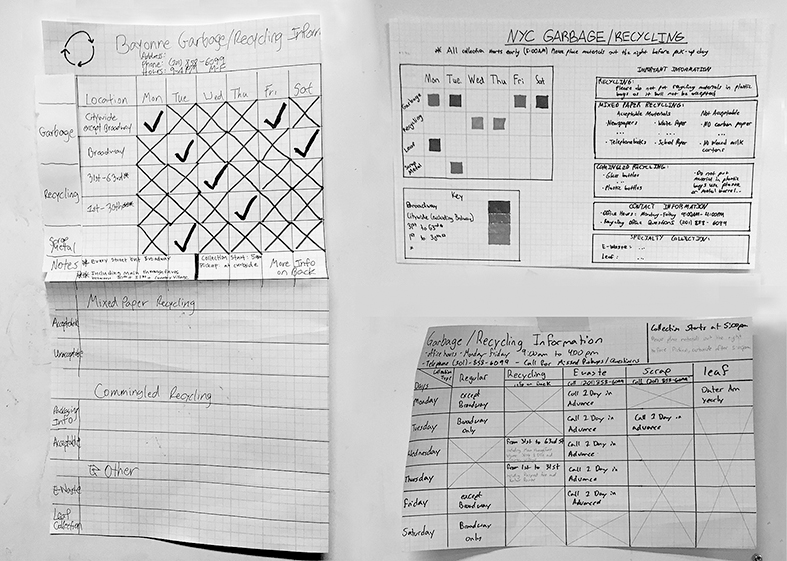 Bayonne Garbage/Recycling Inform
Phone: (201) 858-6099
Location Mon Tue Wed Thu Fri Sat
Garbage
Citywide
except Broadway
Broadway
Recycling
31st-63rd
1st-30th
Scrap
Metal
Notes
* Every street but Broadway
** Including Main
Collection Start: 5
Pickup at curbside
More Info
on Back
Mixed Paper Recycling
Acceptable
Unacceptable
Commingled Recycling
Info
Acceptable
Other
E-Waste
Leaf
Collection
NYC GARBAGE/RECYCLING
* All collection starts early (5:00AM) Please place materials out the night before pick-up day
Mon Tue Wed Thu Fri Sat
Garbage
Recycling
Leaf
Scrap
Metal
Key
Broadway
Citywide (excluding Broadway)
31st to 63rd
1st to 30th
IMPORTANT INFORMATION
RECYCLING:
Please do not put recycling materials in plastic
bags as it will not be accepted
MIXED PAPER RECYCLING:
Acceptable Materials Not Acceptable
• Newspapers • White Paper • NO carbon paper
... ... ...
• Telephonebooks • School Paper • NO waxed milk
cartons
COMINGLED RECYCLING:
• Glass bottles
...
• Plastic bottles
• Do not put
material in plastic
bags use
or metal barrel..
CONTACT INFORMATION
• Office Hours: Monday-Friday 9:00AM-4:00PM
• Recycling Office Questions (201) 858-6099
SPECIALTY COLLECTION:
E-Waste:
Leaf:
Garbage/Recycling Information
• office hours - Monday-Friday 9:00am to 4:00pm
• Telephone (201)-858-6099 - Call for Missed Pickups/Questions
Collection Starts at 5:00pm
Collection
Type
Days
Regular Recycling Ewaste Scrap leaf
Call (201) 858-6099 Call (201) 858-6099
Monday except
Broadway
Call 2 Day in
Advance
yearly
Tuesday Broadway
only
Call 2 Day in
Advance
Call 2 Day in
advance
Wednesday From 31st to 63rd St
Call 2 Day in
Advance
Thursday From 1st to 31st
Call 2 Day in
Advance
Friday except
Broadway
Call 2 Day in
Advanced
Saturday Broadway
only